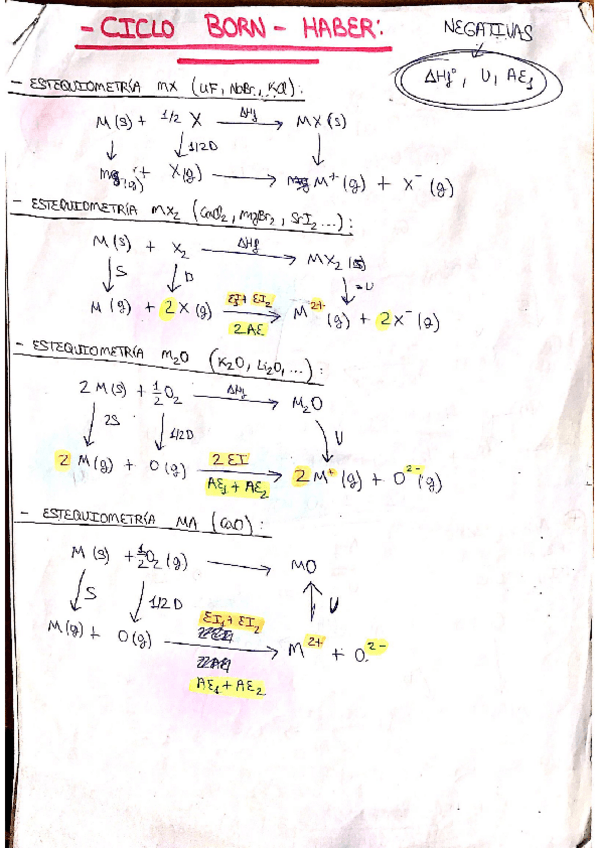 - CICLO BORN - HABER:
NEGATIVAS
ΔHf°, U, AE1
- ESTEQUIOMETRÍA MX (LiF, NaBr, KCl):
M(s) + 1/2 X ΔHf MX(s)
1/2D
(g) + X(g) M⁺(g) + X⁻(g)
- ESTEQUIOMETRÍA MX2 (CaCl2, MgBr2, SrI2...):
M(s) + X2 ΔHf MX2(s)
S D -U
M(g) + 2X(g) EI1+EI2 M²⁺(g) + 2X⁻(g)
2AE
- ESTEQUIOMETRÍA M2O (K2O, Li2O,...):
2M(s) + 1/2 O2 ΔHf M2O
2S 1/2D U
2M(g) + O(g) 2EI 2M⁺(g) + O²⁻(g)
AE1+AE2
- ESTEQUIOMETRÍA MA (CaO):
M(s) + 1/2 O2(g) MO
S 1/2D U
M(g) + O(g) EI1+EI2 M²⁺ + O²⁻
AE1+AE2